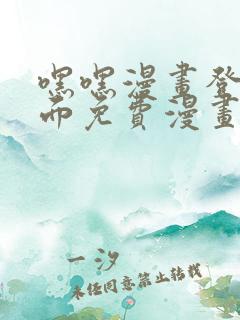 嘿嘿漫畫登
而免費漫畫
一汐
未经同意禁止转载